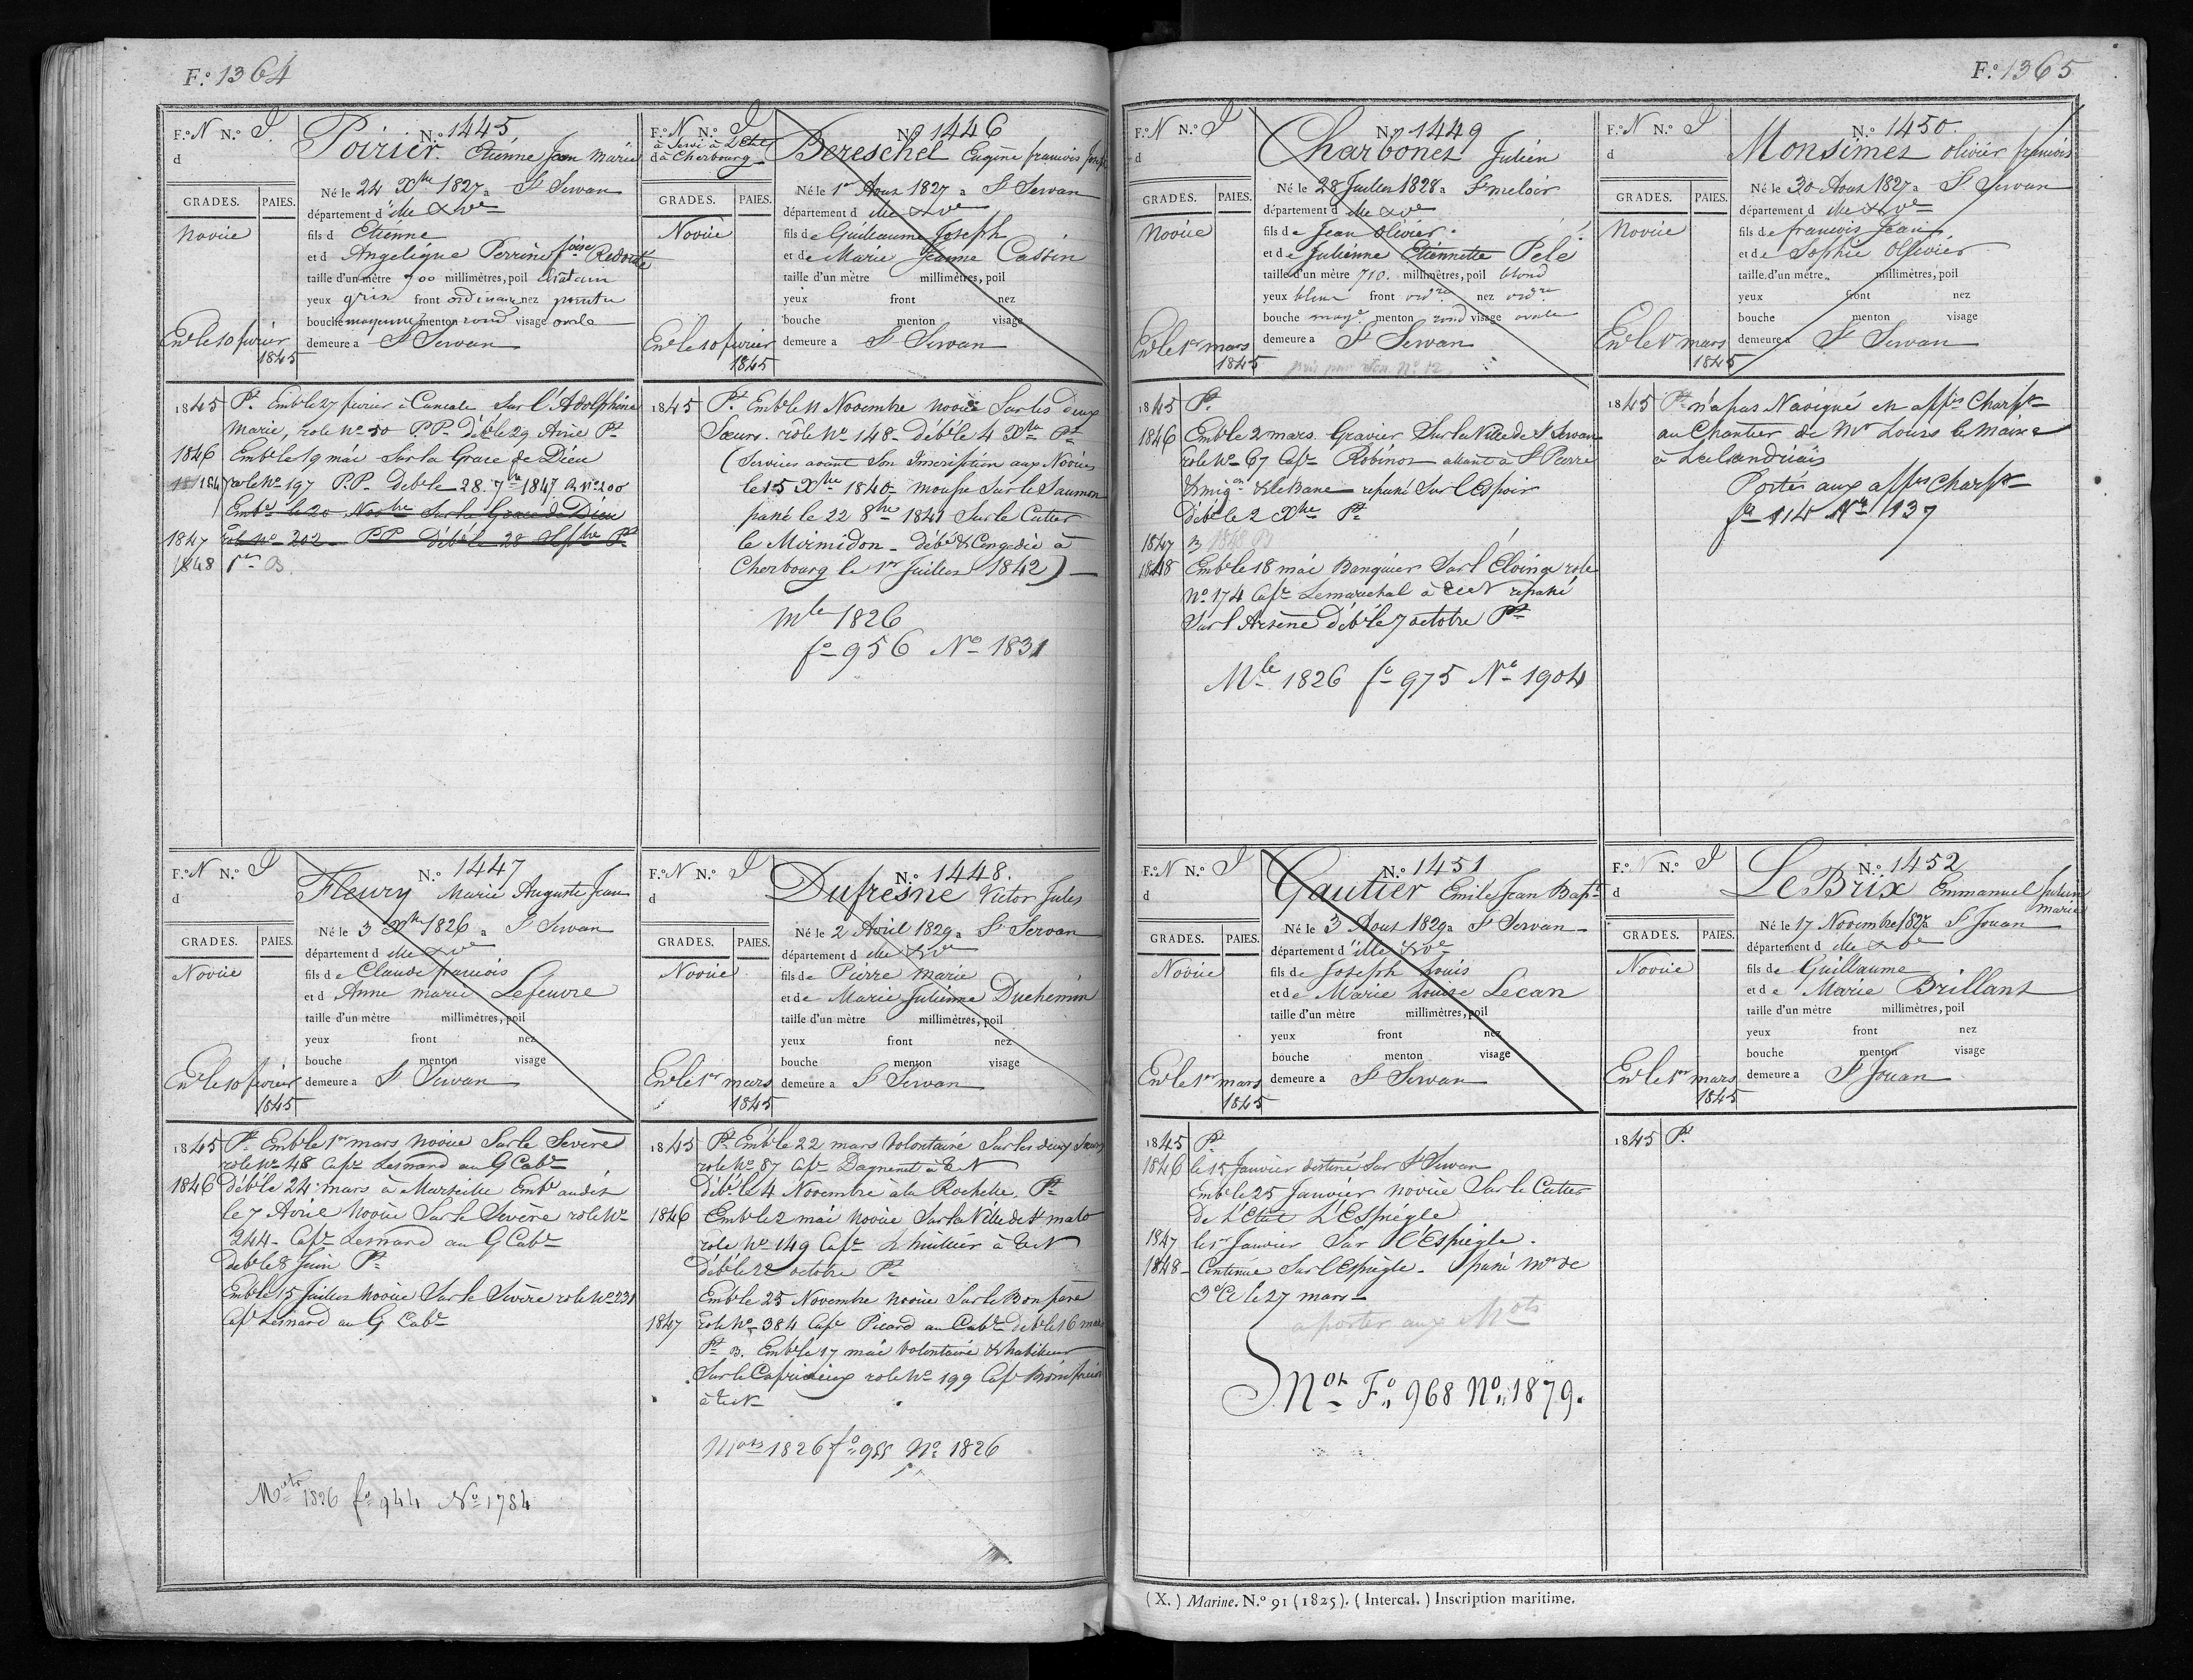 F.º 1364
F.º N N.º I
d
N.º 1445
Poirier Etienne Jean Marie
GRADES. PAIES.
Novice
Né le 24 Xbre 1827 a St Servan
département d'ille & Ve
fils d Etienne
et d Angelique Perrine foise Redouté
taille d'un mètre 700 millimètres, poil chatain
yeux gris front ordinaire nez pointu
bouche moyenne menton rond visage ovale
demeure a St Servan
Enr le 10 fevrier
1845
1845 Pt. Emb le 27 fevrier à Cancale Sur l'Adolphine
Marie, role No 50 P.P. Déb le 29 Avril Pt
1846 Emb le 19 mai Sur la Grace de Dieu
role No 197 P.P. Deb le 28. 7bre 1847 R No 200
Emb le 20 Novbre Sur la Grace de Dieu
1847 role No 202 PP Déb le 28 Septbre Pt
1848 Pt B.
F.º N N.º I
a Servi à
d à Cherbourg
N.º 1446
Bereschel Eugène francois Joseph
GRADES. PAIES.
Novice
Né le 1er Aout 1827 a St Servan
département d ille & Ve
fils de Guillaume Joseph
et de Marie Jeanne Cassin
taille d'un mètre millimètres, poil
yeux front nez
bouche menton visage
demeure a St Servan
Enr le 10 fevrier
1845
1845 Pt. Emb le 11 Novembre novice Sur les deux
Sœurs. rôle No 148 - Déb le 4 Xbre Pt
(Services avant Son Inscription aux Novices
le 15 Xbre 1840 - mousse Sur le Saumon
passé le 22 8bre 1841 Sur le Cutter
le Mirmidon - déb & Congedié à
Cherbourg le 1er Juillet 1842)
Mle 1826
fo 956 No 1831
F.º N N.º I
d
N.º 1447
Fleury Marie Auguste Jean
GRADES. PAIES.
Novice
Né le 3 Xbre 1826 a St Servan
département d ille & Ve
fils de Claude francois
et d Anne marie Lefeuvre
taille d'un mètre millimètres, poil
yeux front nez
bouche menton visage
demeure a St Servan
Enr le 10 fevrier
1845
1845 Pt. Emb le 1er mars novice Sur le Sevère
role No 48 Cape Lesnard au G Cabe
1846 Déb le 24 mars à Marseille Emb audit
le 7 Avril Novice Sur le Sevère role No
244 - Cape Lesnard au G Cabe
Deb le 8 Juin Pt
Emb le 15 Juillet Novice Sur le Sevère role No 231
Cape Lesnard au G Cabe
Mots 1826 fo 944 No 1784
F.º N N.º I
d
N.º 1448.
Dufresne Victor Jules
GRADES. PAIES.
Novice
Né le 2 Avril 1829 a St Servan
département d ille & Ve
fils de Pierre Marie
et de Marie Julienne Duchemin
taille d'un mètre millimètres, poil
yeux front nez
bouche menton visage
demeure a St Servan
Enr le 1er mars
1845
1845 Pt Emb le 22 mars Volontaire Sur les deux Sœurs
role No 87 Cape Dagnenet à TN
Déb le 4 Novembre à la Rochelle. Pt
1846 Emb le 2 mai novice Sur la Ville de St malo
role No 149 Cape à TN
Déb le 22 octobre Pt
Emb le 25 Novembre novice Sur le Bon père
1847 role No 384 Cape Picard au Cabe Deb le 16 mars
Pt B. Emb le 17 mai Volontaire & habilleur
Sur le Capricieux role No 199 Cap
à TN
Mots 1826 fo 955 No 1826
F.º 1365
F.º N N.º I
d
N.º 1449
Charbonet Julien
GRADES. PAIES.
Novice
Né le 28 Juillet 1828 a St meloir
département d ille & Ve
fils de Jean Olivier
et de Julienne Etiennette Pelé
taille d'un mètre 710. millimètres, poil blond
yeux bleus front ordre nez ordre
bouche moye menton rond visage ovale
demeure a St Servan
Enr le 1er mars
1845
1845 Pt.
1846 Emb le 2 mars. Gravier Sur la Ville de St Servan
role No 67 Cape Robinot allant à St Pierre
& mign & le Banc repassé Sur l'Espoir
Déb le 2 Xbre Pt
1847 B
1848 Emb le 18 mai Banquier Sur l'Eloinge role
No 174 Cape Lemarechal à TN repassé
Sur l'Arsène déb le 7 octobre Pt
Mle 1826 fo 975 No 1904
F.º N N.º I
d
N.º 1450.
Monsimet olivier francois
GRADES. PAIES.
Novice
Né le 30 Aout 1827 a St Servan
département d ille & Ve
fils de francois Jean
et de Sophie Ollivier
taille d'un mètre millimètres, poil
yeux front nez
bouche menton visage
demeure a St Servan
Enr le 1er mars
1845
1845 Pt n'a pas Navigué en appis Charpr
au Chantier de Mr Louis le Maire
à Lalandriais
Porter aux appis Charpr
fo 114 No 137
F.º N N.º I
d
N.º 1451
Gautier Emile Jean Bapt
GRADES. PAIES.
Novice
Né le 3 Aout 1829 a St Servan
département d'ille & Ve
fils de Joseph Louis
et de Marie Louise Lecan
taille d'un mètre millimètres, poil
yeux front nez
bouche menton visage
demeure a St Servan
Enr le 1er mars
1845
1845 Pt
1846 le 15 Janvier destiné Sur St Servan
Emb le 25 Janvier novice Sur le Cutter
De l'Etat L'Espiégle
1847 le 1er Janvier Sur l'Espiegle.
1848 - Continue Sur l'Espiegle - passé Mot de
3e Cl le 27 mars -
a porter aux Mots
Mot Fo 968 No 1879.
F.º N.º I
d
N.º 1452
Le Brix Emmanuel Julien
marie
GRADES. PAIES.
Novice
Né le 17 Novembre 1827 a St Jouan
département d ille & Ve
fils de Guillaume
et de Marie Brillant
taille d'un mètre millimètres, poil
yeux front nez
bouche menton visage
demeure a St Jouan
Enr le 1er mars
1845
1845 Pt.
(X.) Marine. N.º 91 (1825). (Intercal.) Inscription maritime.